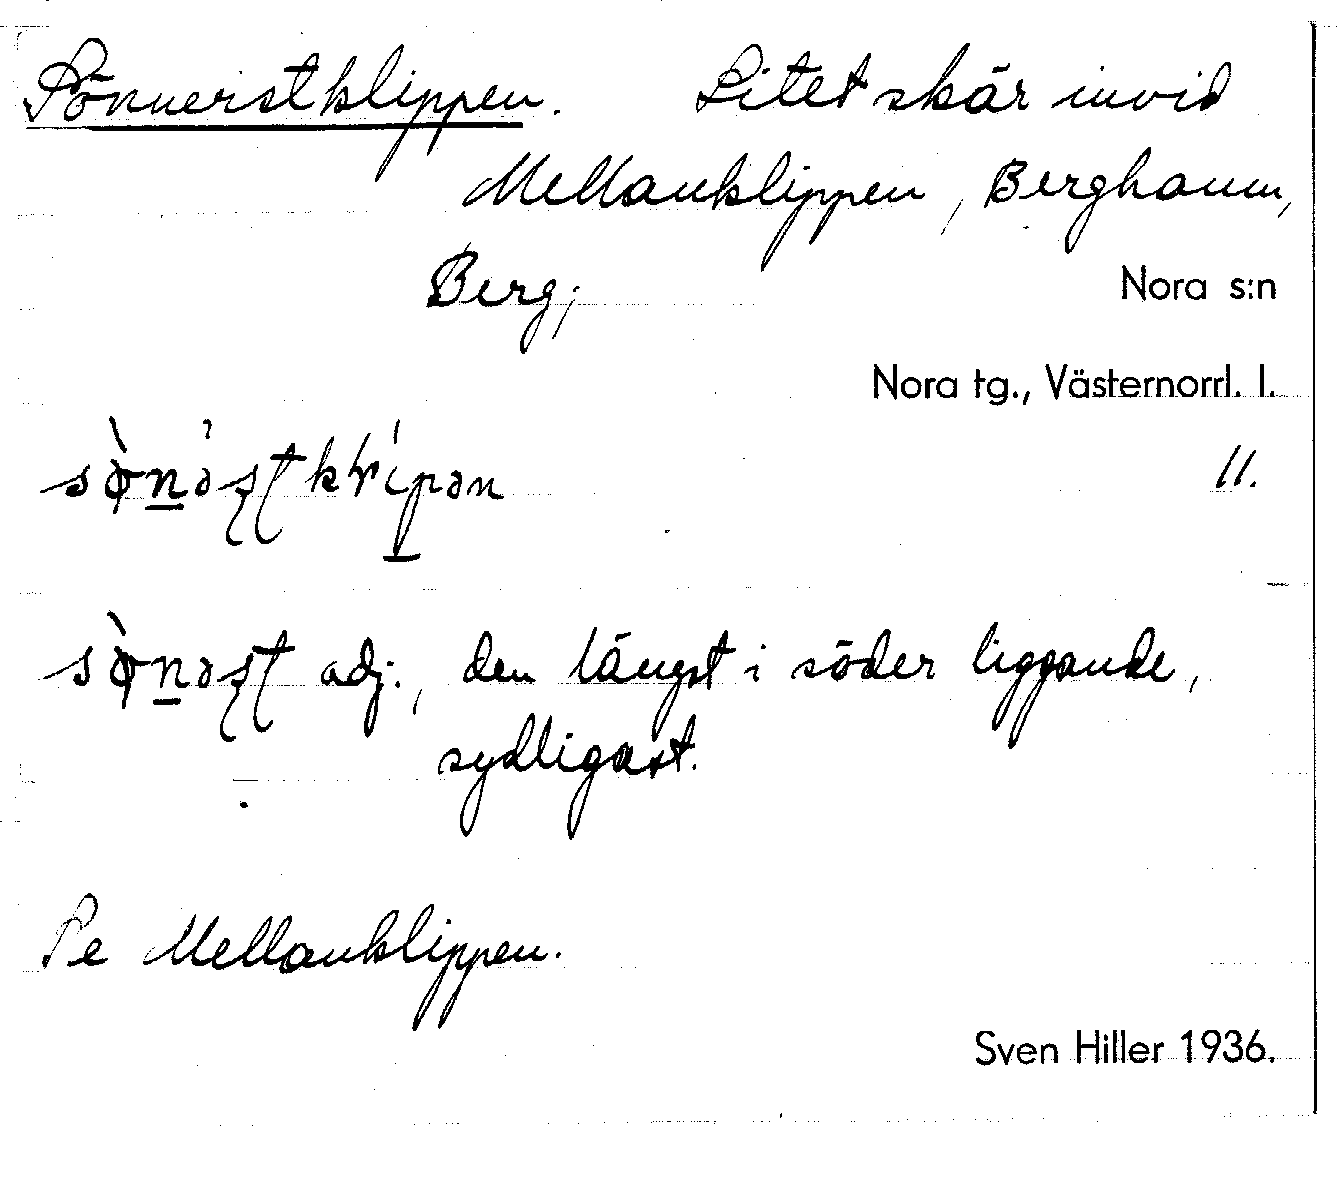 Sönnerstklippen. Litet skär invid
Mellanklippen, Berghamn,
Berg;
Nora s:n
Nora tg., Västernorrl. l.
11.
adj., den längst i söder liggande,
sydligast.
Se Mellanklippen.
Sven Hiller 1936.